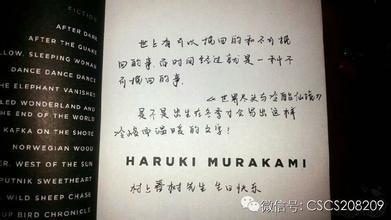 FICTION
AFTER DARK
AFTER THE QUAKE
LLOW, SLEEPING WOMAN
DANCE DANCE DANCE
THE ELEPHANT VANISHES
ILED WONDERLAND AND
THE END OF THE WORLD
KAFKA ON THE SHORE
NORWEGIAN WOOD
ER, WEST OF THE SUN
PUTNIK SWEETHEART
WILD SHEEP CHASE
UP BIRD CHRONICLE
世上有可以挽回的和不可挽
回的事,而时间经过就是一种不
可挽回的事.
《世界尽头与冷酷仙境》
是不是出生在冬季才会写出这样
冷峻而温暖的文字!
HARUKI MURAKAMI
村上春树先生 生日快乐
微信号: CSCS208209